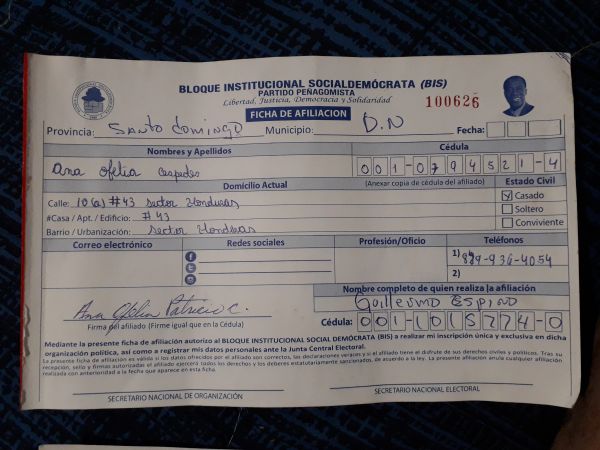 BLOQUE INSTITUCIONAL SOCIALDEMÓCRATA (BIS)
PARTIDO PEÑAGOMISTA
Libertad, Justicia, Democracia y Solidaridad
FICHA DE AFILIACION
100626
Provincia: Santo Domingo Municipio: D.N Fecha:
Nombres y Apellidos Cédula
Ana Ofelia Cespedes 001-0794521-4
Domicilio Actual (Anexar copia de cédula del afiliado) Estado Civil
Calle: 10 (a) #43 sector Honduras Casado
#Casa / Apt. / Edificio: #43 Soltero
Barrio / Urbanización: Sector Honduras Conviviente
Correo electrónico Redes sociales Profesión/Oficio Teléfonos
1) 849-936-4054
2)
Nombre completo de quien realiza la afiliación
Guillermo Espino
Ana Ofelia Patricio C.
Firma del afiliado (Firme igual que en la Cédula) Cédula: 001-1015774-0
Mediante la presente ficha de afiliación autorizo al BLOQUE INSTITUCIONAL SOCIAL DEMÓCRATA (BIS) a realizar mi inscripción única y exclusiva en dicha
organización política, así como a registrar mis datos personales ante la Junta Central Electoral.
La presente ficha de afiliación es válida si los datos ofrecidos por el afiliado son correctos, las declaraciones veraces y si el afiliado tiene el disfrute de sus derechos civiles y políticos. Tras su
recepción, sello y firmas autorizadas el afiliado ejercerá todos los derechos y los deberes estatutariamente sancionados, de acuerdo a la ley. La presente afiliación anula cualquier afiliación
realizada con anterioridad a la fecha que aparece en esta ficha.
SECRETARIO NACIONAL DE ORGANIZACIÓN SECRETARIO NACIONAL ELECTORAL